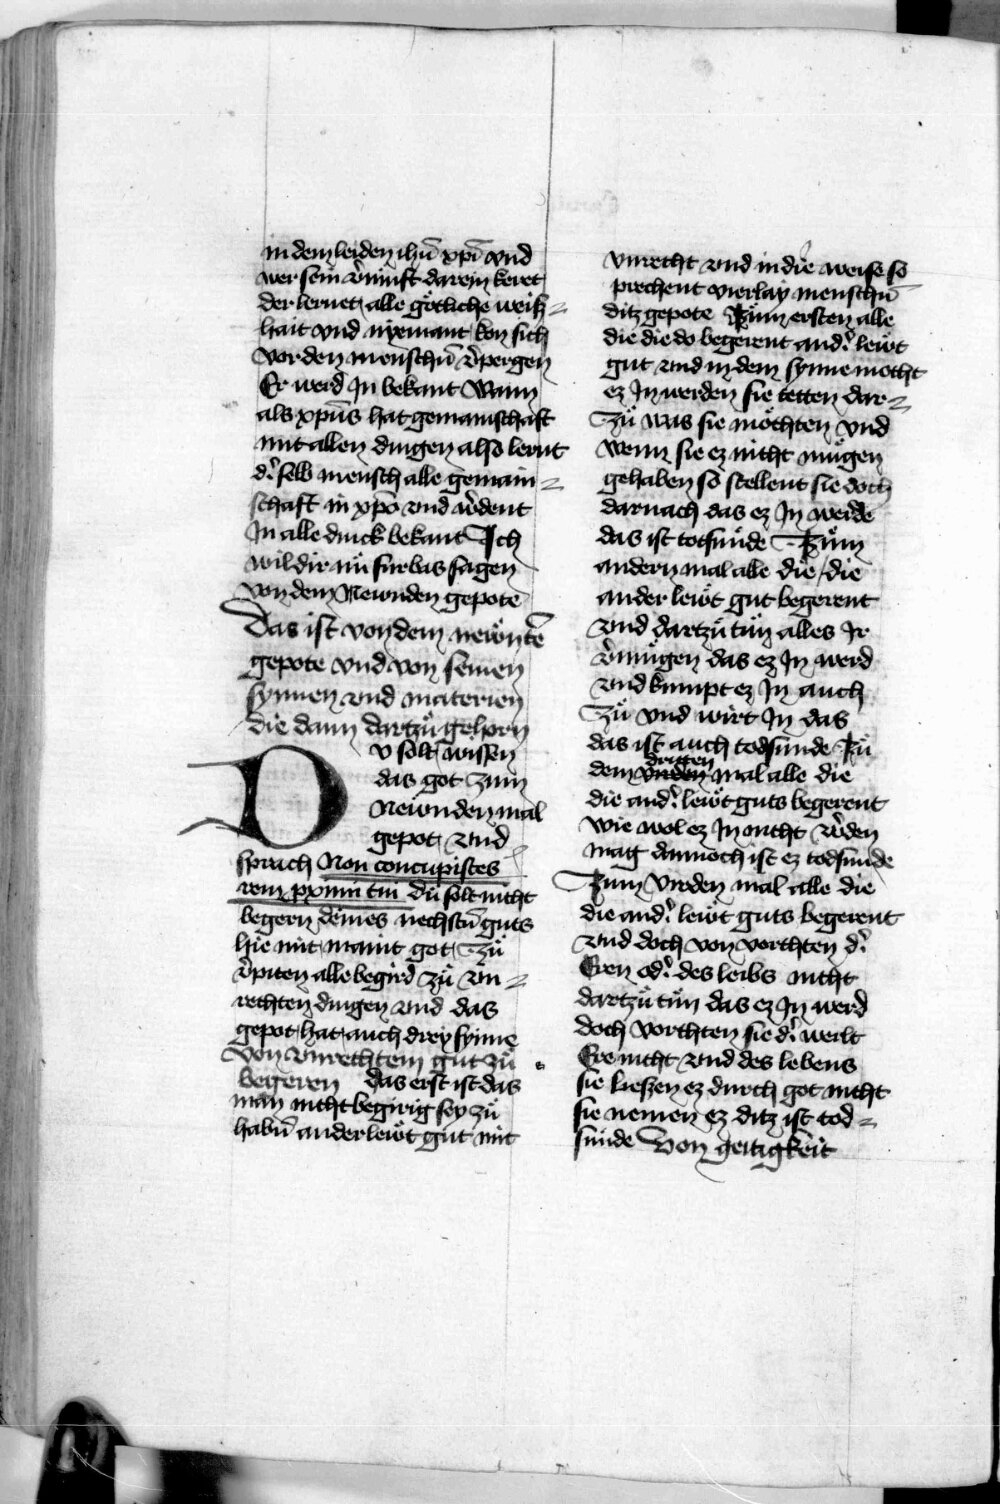 in dem leiden ihū xp̄i vnd
wer sein v̓nunft darein keret
der lernet alle gotliche weiſ⸗
hait vnd nyemant kon sich
vor den menschn̄ v̓pergen
Er werd In bekant Wann
als xpūs hat gemainschaft
mit allen dingen also lernt
d̓ selb mensch alle gemain⸗
schaft in xp̄o vnd w̓dent
In alle dinck bekant Ich
wil dir nu furbas sagen
von dem Newnden gepote
Das ist von dem newnte
gepote vnd von seinen
synnen vnd materien
die dann dartzů gehorn
Dv solt wissen
das got zum
Newnden mal
gepot vnd
sprach Non concupisces
rem pximi tui Du solt nicht
begern deines nechstn̄ guts
hie mit maint got Zů
v̓piten alle begird zů vn⸗
rechten dingen vnd das
gepot hat auch drey synne
von vnrechtem gut zů
begeren das erst ist das
man nicht begirig sey zů
habn̄ ander lewt gut mit
vnrecht vnd in die weise so
prechent vierlay menschn̄
ditz gepote Zum ersten alle
die die do begerent and̓ lewt
gut vnd in dem synne mocht
ez In werden sie tetten dar⸗
Zů was sie mochten vnd
wenn sie ez nicht mugen
gehaben so stellent sie doch
darnach das ez In werde
das ist totsunde Zum
andern mal alle die die
ander lewt gut begerent
vnd dartzů tun alles Ir
v̓mugen das ez In werd
vnd kumpt ez In auch
Zů vnd wirt In das
das ist auch todsunde Zu
dritten
dem mal alle die
die and̓ lewt guts begerent
wie wol ez In nicht w̓den
mag dannoch ist ez todsunde
Zum Virden mal alle die
die and̓ lewt guts begerent
vnd doch von vorchten d̓
Eren od̓ des leibs nicht
dartzů tun das ez In werd
doch vorchten sie d̓ werlt
Ere nicht vnd des lebens
sie lieszen ez durch got nicht
sie nemen ez ditz ist tod⸗
sunde Von geitigkeit